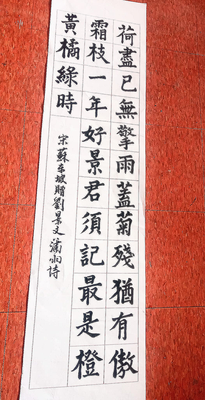 荷盡已無擎雨蓋菊殘猶有傲
霜枝一年好景君須記最是橙
黃橘綠時
宋蘇東坡贈劉景文 滿汩詩